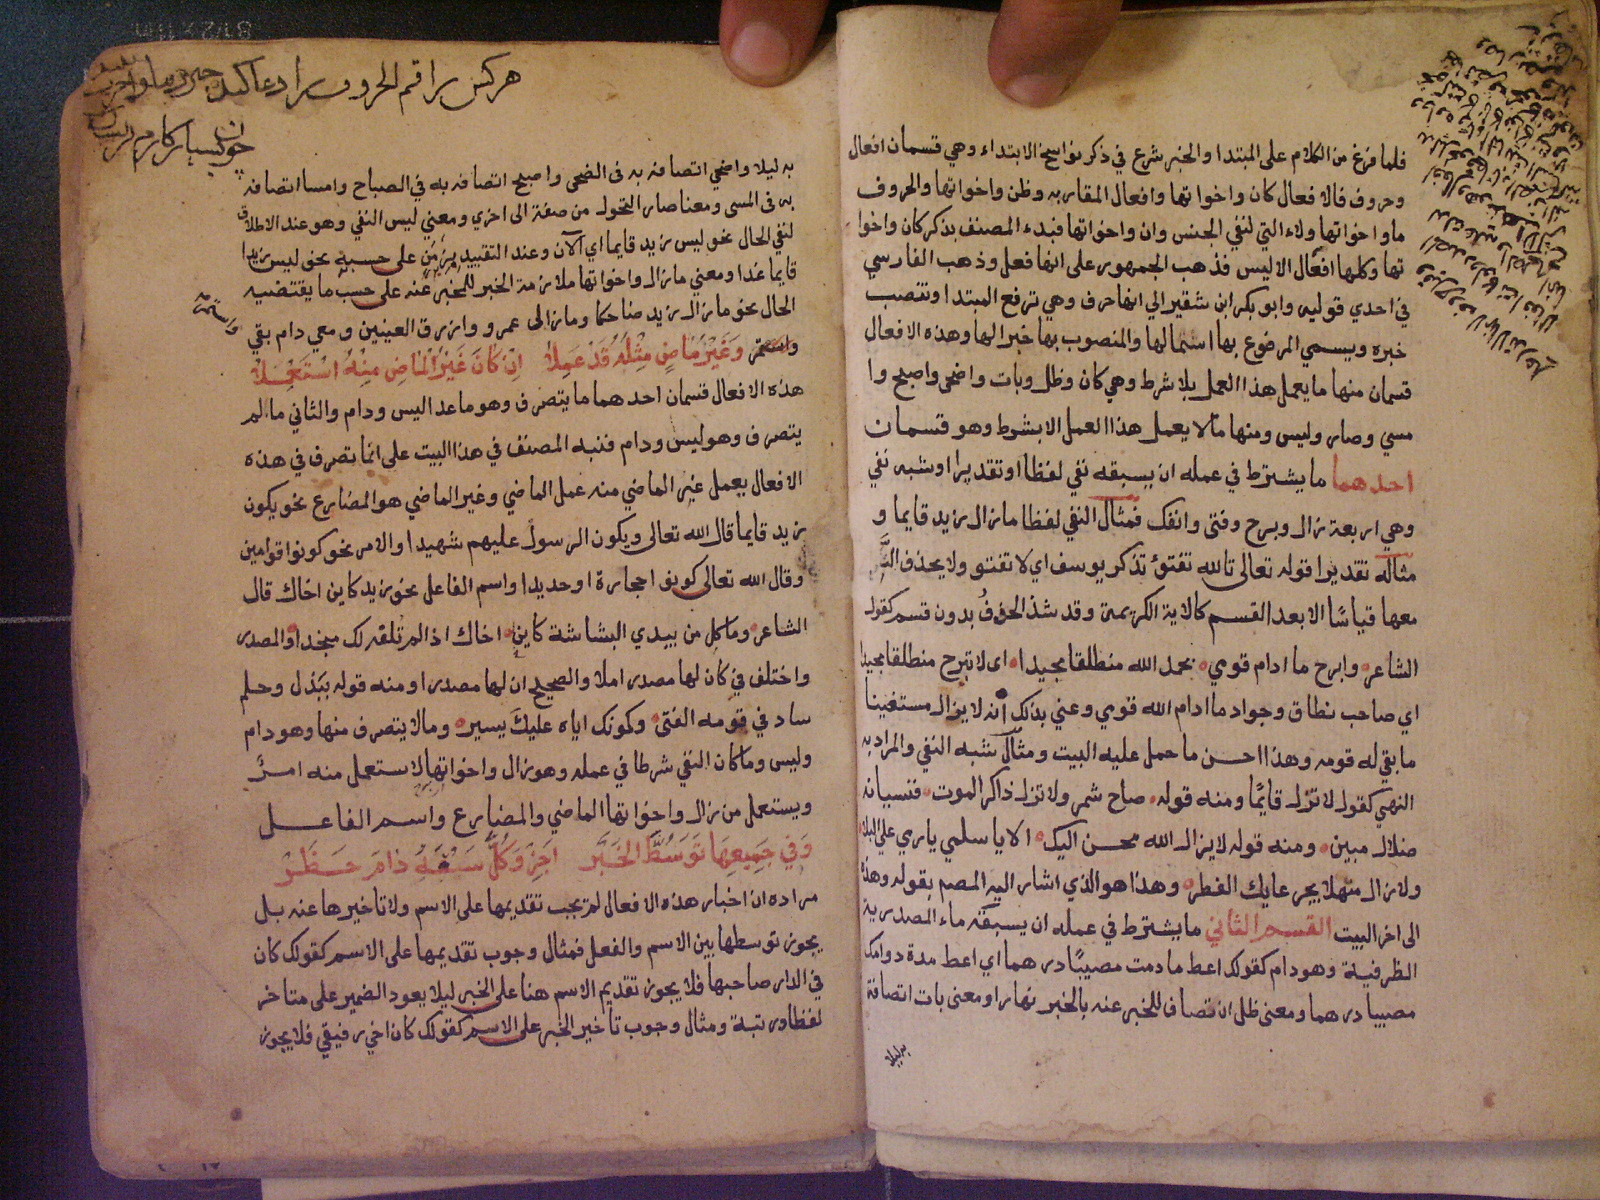 فلما فرغ من الكلام على المبتدا والخبر شرع في ذكر نواسخ الابتداء وهي قسمان افعال
وحروف فالافعال كان واخواتها وافعال المقاربه وظن واخواتها والحروف
ما واخواتها ولاء التي لنفي الجنس وان واخواتها فبدء المصنف بذكر كان واخوا
تها وكلها افعال الا ليس فذهب الجمهور على انها فعل وذهب الفارسي
في احدي قوليه وابو بكر ابن شقير الي انها حرف وهي ترفع المبتدا وتنصب
خبره ويسمي المرفوع بها اسما لها والمنصوب بها خبرا لها وهذه الافعال
قسمان منها ما يعمل هذا العمل بلا شرط وهي كان وظل وبات واضحى واصبح وا
مسي وصار وليس ومنها ما لا يعمل هذا العمل الا بشرط وهو قسمان
احدهما ما يشترط في عمله ان يسبقه نفي لفظا او تقديرا او شبه نفي
وهي اربعة زال وبرح وفتى وانفك فمثال النفي لفظا ما زال زيد قايما و
مثاله تقديرا قوله تعالى تالله تفتؤ تذكر يوسف اي لا تفتو ولا يحذف
معها قياسًا الا بعد القسم كالاية الكريمة وقد شذ الحذف بدون قسم كقول
الشاعر وابرح ما ادام قومي بحمد الله منطلقا مجيدا اى لا تبرح منطلقا مجيدا
اي صاحب نطاق وجواد ما ادام الله قومي وعني بذلك انه لا يزال مستغنيا
ما بقي له قومه وهذا احسن ما حمل عليه البيت ومثال شبه النفي والمراد به
النهي كقولك لا تزل قايمًا ومنه قوله صاح شمر ولا تزل ذاكر الموت فنسيانه
ضلال مبين ومنه قوله لا يزال الله محسن اليك الا يا سلمي يا دار مي على البلا
ولا زال منهلا بجرعايك القطر وهذا هو الذي اشار اليه المصم بقوله وهذى
الى اخر البيت القسم الثاني ما يشترط في عمله ان يسبقه ماء المصدرية
الظرفية وهو دام كقولك اعط ما دمت مصيبًا درهما اي اعط مدة دوامك
مصيبا درهما ومعنى ظل اتصاف المخبر عنه بالخبر نهارا ومعنى بات اتصافه
به ليلا
هر كس راقم الحروف را دعا كند
به ليلا واضحي اتصافه به فى الضحى واصبح اتصافه به في الصباح وامسا اتصافه
به فى المسى ومعنا صار التحول من صفة الى اخري ومعني ليس النفي وهو عند الاطلاق
لنفي الحال نحو ليس زيد قايما اي الآن وعند التقييد بزمن على حسبه نحو ليس زيدا
قايما غدا ومعني ما زال واخواتها ملازمة الخبر للمخبر عنه على حسب ما يقتضيه
الحال نحو ما زال زيد ضاحكا وما زالى عمرو وازرق العينين ومعي دام بقي
واستمر وَغَيْرُ مَاضٍ مِثْلَهُ قَدْ عَمِلاَ اِنْ كَانَ غَيْرُ الْمَاضِ مِنْهُ اسْتُعْمِلَا
هذه الافعال قسمان احدهما ما يتصرف وهو ما عدا ليس ودام والثاني ما لم
يتصرف وهو ليس ودام فنبه المصنف في هذا البيت على انما تصرف في هذه
الافعال يعمل غير الماضي منه عمل الماضي وغير الماضي هو المضارع نحو يكون
زيد قايما قال الله تعالى ويكون الرسول عليهم شهيدا والامر نحو كونوا قوامين
وقال الله تعالى كونوا حجارة او حديدا واسم الفاعل نحو زيد كاين اخاك قال
الشاعر وما كل من يبدي البشاشة كاين اخاك اذا لم تلفه لك منجدا والمصدر
واختلف في كان لها مصدر ام لا والصحيح ان لها مصدرا ومنه قوله ببذل وحلم
ساد في قومه الفتى وكونك اياه عليك يسير وما لا يتصرف منها وهو دام
وليس وما كان النفي شرطا في عمله وهو زال واخواتها لا ستعمل منه امرٌ
ويستعمل من زال واخواتها الماضي والمضارع واسم الفاعل
وَفِي جَمِيعِهَا تَوَسُّطَ الخَبَرِ اَجِزْ وَكُلٌّ سَبْقَهُ دَامَ حَظَرْ
مراده ان اخبار هذه الافعال لم يجب تقديمها على الاسم ولا تاخيرها عنه بل
يجوز توسطها بين الاسم والفعل فمثال وجوب تقديمها على الاسم كقولك كان
في الدار صاحبها فلا يجوز تقديم الاسم هنا على الخبر ليلا يعود الضمير على متاخر
لفظا ورتبة ومثال وجوب تاخير الخبر على الاسم كقولك كان اخي رفيقي فلا يجوز